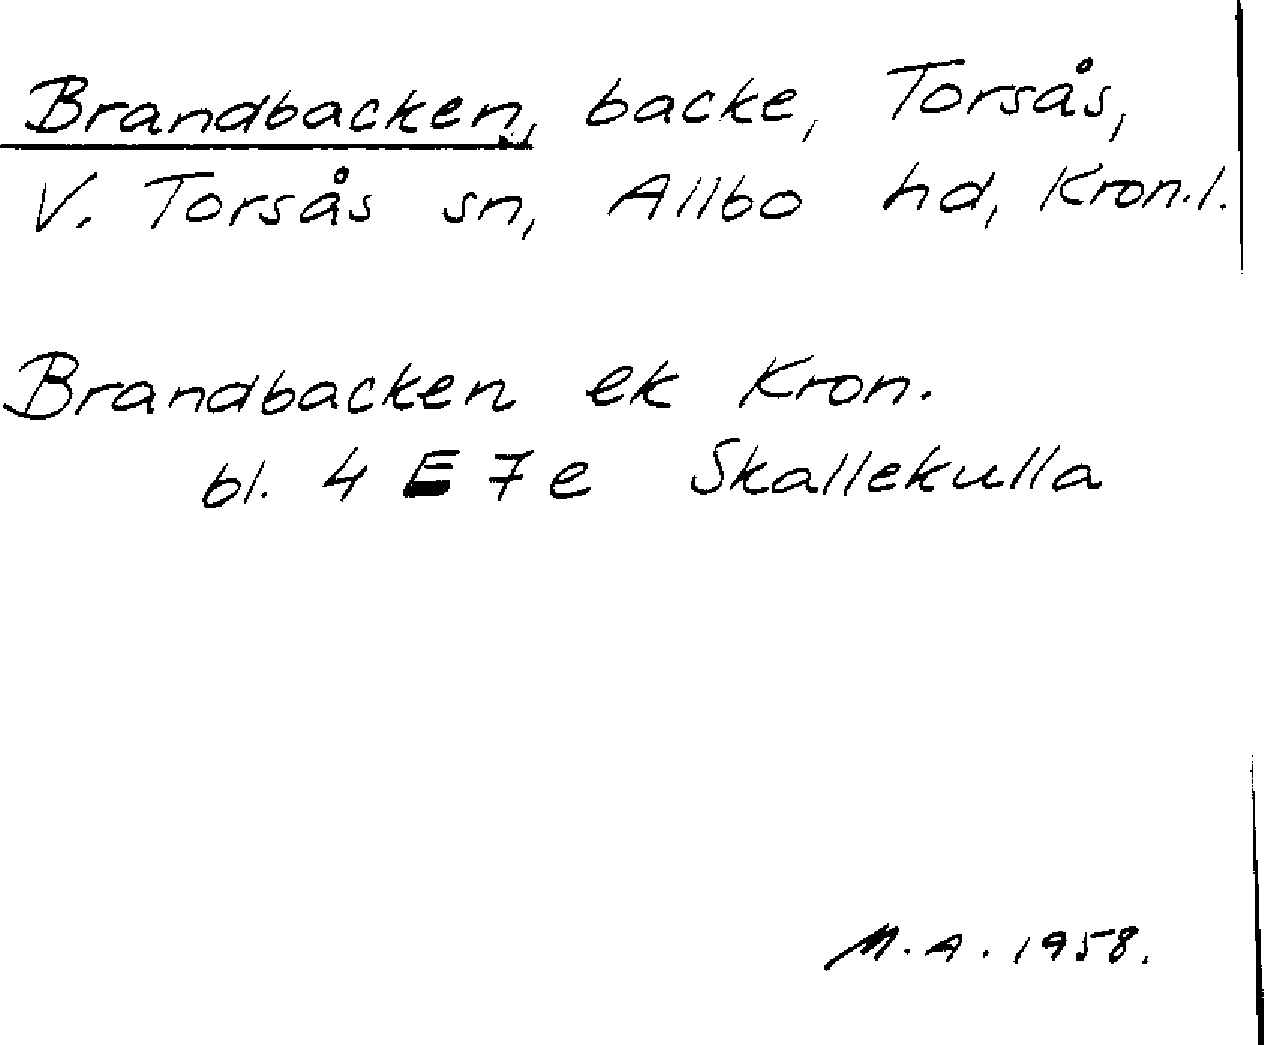 Brandbacken, backe, Torsås,
V. Torsås sn, Allbo hd, Kron.l.
Brandbacken ek Kron.
bl. 4 E 7 e Skallekulla
M.A. 1958.